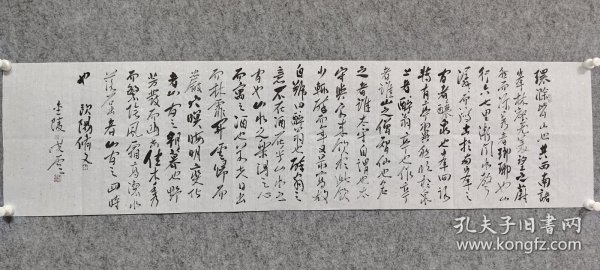 環滁皆山也其西南諸
峰林壑尤美望之蔚
然而深秀者瑯琊也山
行六七里漸聞水聲
潺潺而瀉出於兩峰之
間者釀泉也峰回路
轉有亭翼然臨於泉
上者醉翁亭也作亭
者誰山之僧智仙也名
之者誰太守自謂也太
守與客來飲於此飲
少輒醉而年又最高故
自號曰醉翁也醉翁之
意不在酒在乎山水之
間也山水之樂得之心
而寓之酒也若夫日出
而林霏開雲歸而
巖穴暝晦明變化
者山間之朝暮也野
芳發而幽香佳木秀
而繁陰風霜高潔水
落石出者山間之四時
也 歐陽脩文
金陵
孔夫子旧书网
www.kongfz.com